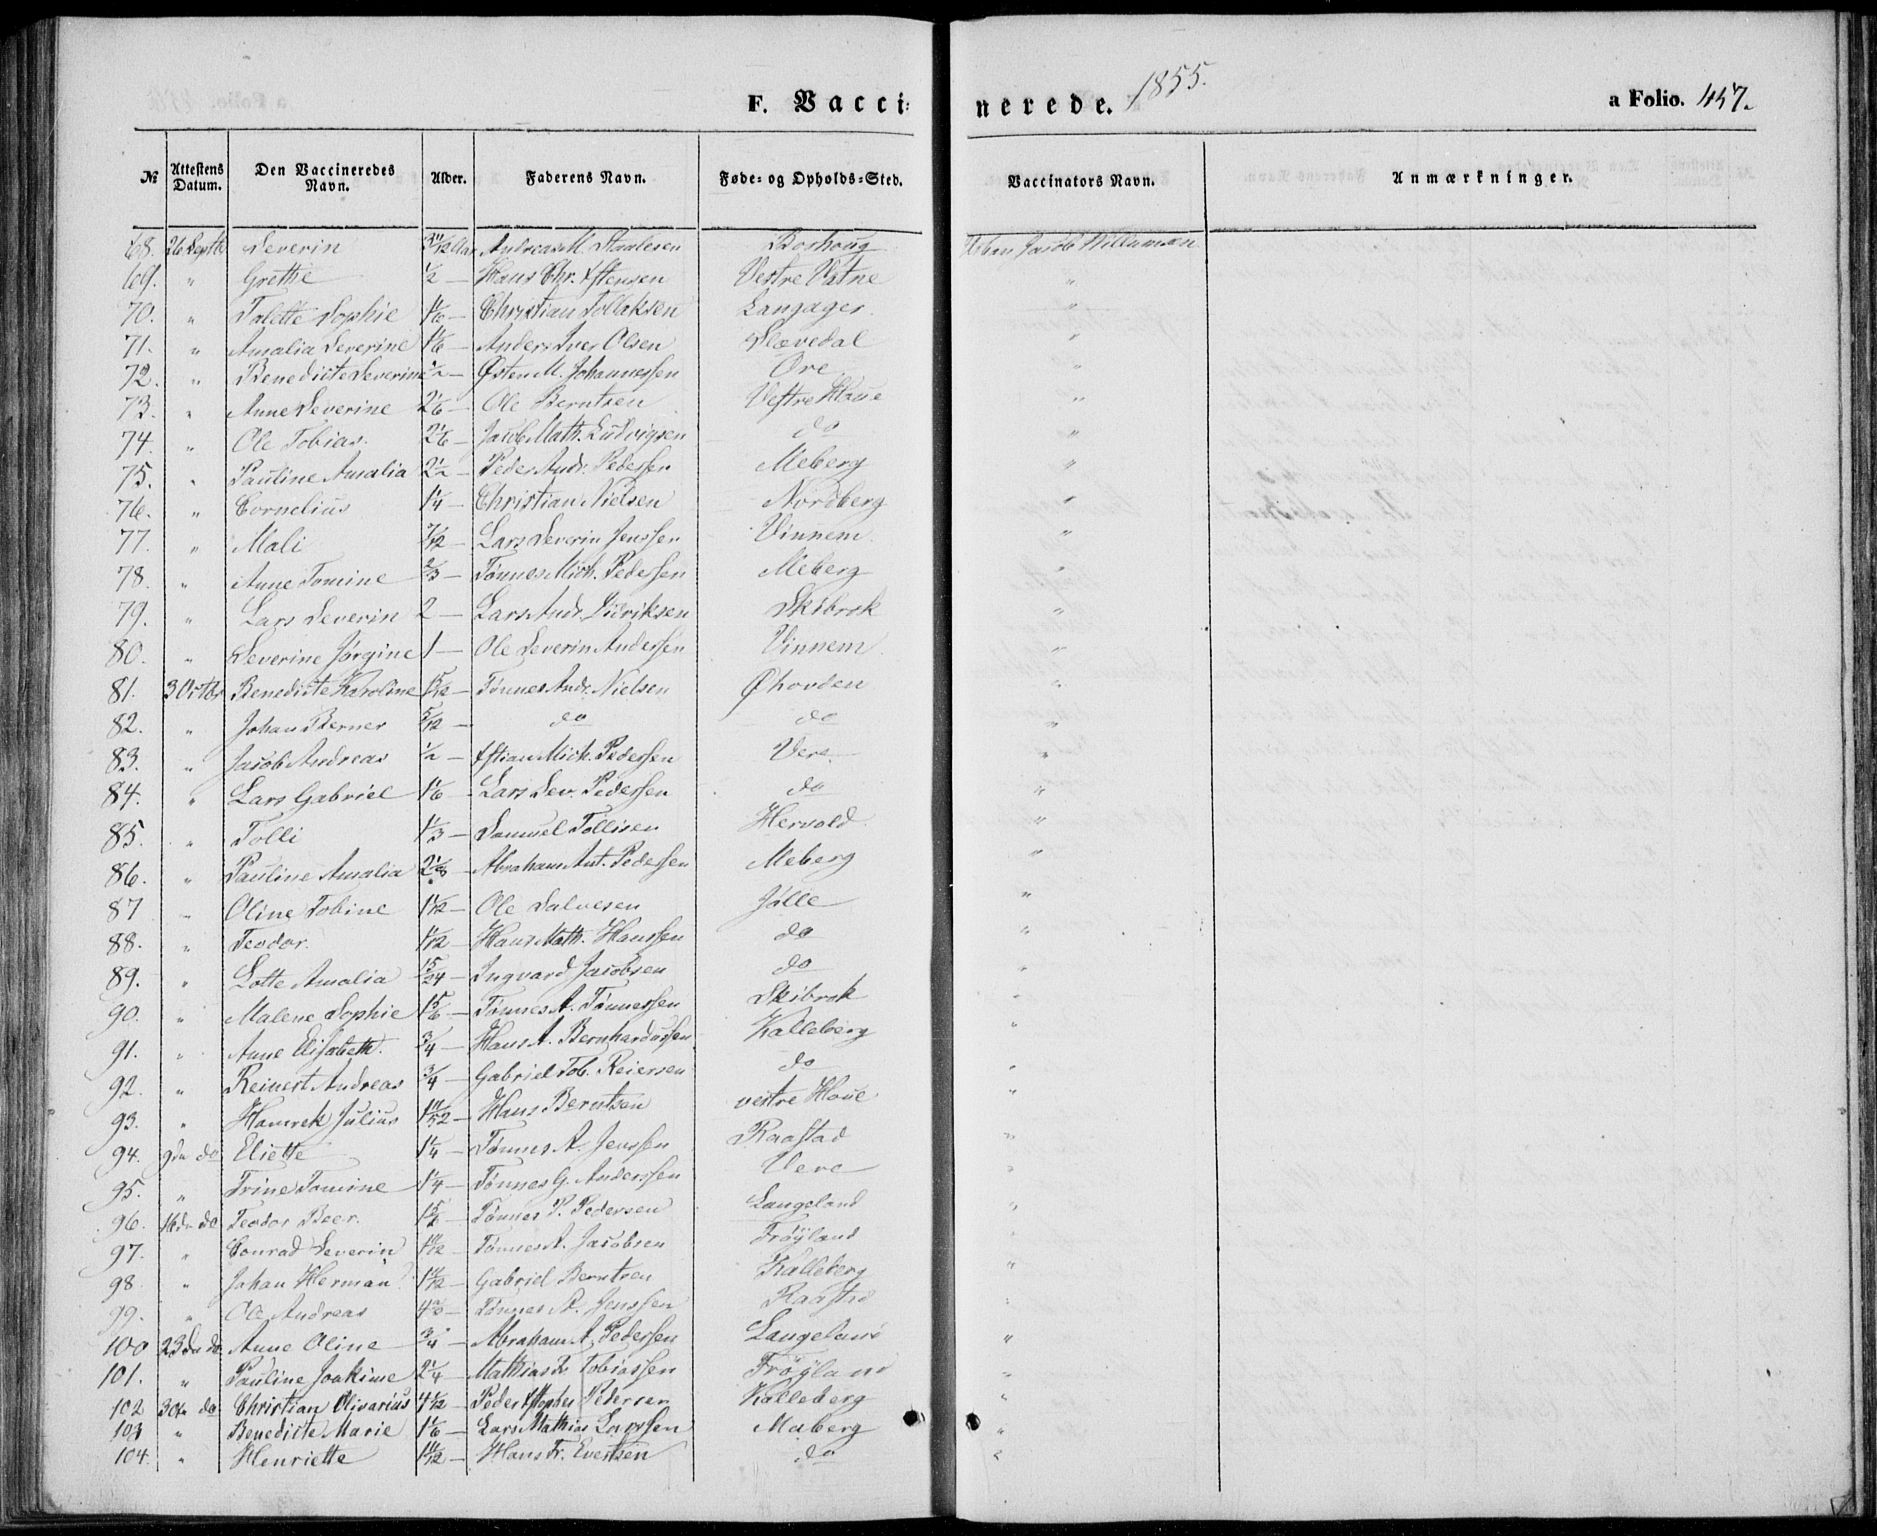 F. Vaccinerede. 1855. a Folio. 457.
№ Attestens Datum. Den Vaccineredes Navn. Alder. Faderens Navn. Føde- og Opholds-Sted. Vaccinators Navn. Anmærkninger.
68. 26 Septb Severin Andreas M. Staalesen Boshoug Jacob Willumsen
69. " Grethe 1/2 — Hans Chr. Estensen Vestre Vatne "
70. " Talette Sophie 1 1/6 — Christian Tollaksen Langager. "
71. " Amalia Severine 1 1/6 — Anders Iver Olsen Slævedal "
72. " Benedicte Severine 1/2 — Østen M. Johannessen Ore "
73. " Anne Severine 2 1/6 — Ole Berntsen Vestre Houe "
74. " Ole Tobias. 2 1/6 — Jacob Math. Ludvigsen do "
75. " Pauline Amalia 2 1/2 — Peder Andr. Pedersen Meberg "
76. " Cornelius 1 1/4 — Christian Nielsen Nordberg "
77. " Mali 7/12 — Lars Severin Jenssen Vinnem. "
78. " Anne Tomine 2/3 — Tønnes Mich. Pedersen Meberg "
79. " Lars Severin 2 — Lars Andr. Diriksen Skibrok "
80. " Severine Jørgine 1 — Ole Severin Andersen Vinnem. "
81. 3 Octbr Benedicte Karoline 1 5/12 — Tønnes Andr. Nielsen Øhovden "
82. " Johan Berner 5/12 — do do "
83. " Jacob Andreas 1/2 — Estian Mich. Pedersen Vere. "
84. " Lars Gabriel 1 1/6 — Lars Sev. Pedersen do "
85. " Tolli 1 1/3 — Samuel Tollisen Hervold "
86. " Pauline Amalia Abraham Ant. Pedersen Meberg "
87 " Oline Tobine 1 1/12 — Ole Salvesen Jølle "
88. " Teodor. 1 1/12 — Hans Math. Hanssen do "
89. " Lotte Amalia 15/24 — Ingvard Jacobsen do "
90. " Malene Sophie 1 5/6 — Tønnes A. Tønnessen Skibrok "
91. " Anne Elisabeth. 3/4 — Hans A. Bernhardussen Kalleberg "
92. " Reinert Andreas 3/4 — Gabriel Tob. Reiersen do "
93. " Julius Hans Berntsen vestre Houe "
94. 9de do Eliette 1 1/4 — Tønnes A. Jenssen Raastad "
95. " Trine Tomine 1 1/4 — Tønnes G. Anderssen Vere "
96. 16de do Teodor Beer. Tønnes P. Pedersen Langeland "
97. " Conrad Severin Tønnes A. Jacobsen Frøyland "
98 " Johan Herman Gabriel Berntsen Kalleberg "
99. " Ole Andreas Tønnes A. Jenssen Raastad "
100 23de do Anne Oline 3/4 — Abraham A. Pedersen Langeland "
101. " Pauline Joakime 2 1/4 — Mathias Fr. Tobiassen Frøyland "
102 30te do Christian Olivarius 4 1/2 — Peder Pedersen Kalleberg
103 " Benedicte Marie 1 1/6 — Lars Mathias Larssen Maberg "
104. " Henriette 1 1/12 — Hans Fr. Evertsen do "